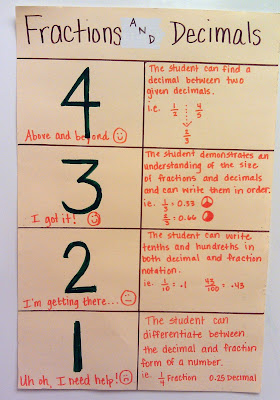 Fractions AND Decimals
4
Above and beyond
The student can find a
decimal between two
given decimals.
i.e. 1/2 : 4/5
2/3
3
I got it!
The student demonstrates an
understanding of the size
of fractions and decimals
and can write them in order.
ie. 1/3 = 0.33
2/3 = 0.66
2
I'm getting there...
The student can write
tenths and hundreths in
both decimal and fraction
notation.
ie. 1/10 = .1 43/100 = .43
1
Uh oh, I need help!
The student can
differentiate between
the decimal and fraction
form of a number.
ie. 1/4 Fraction 0.25 Decimal